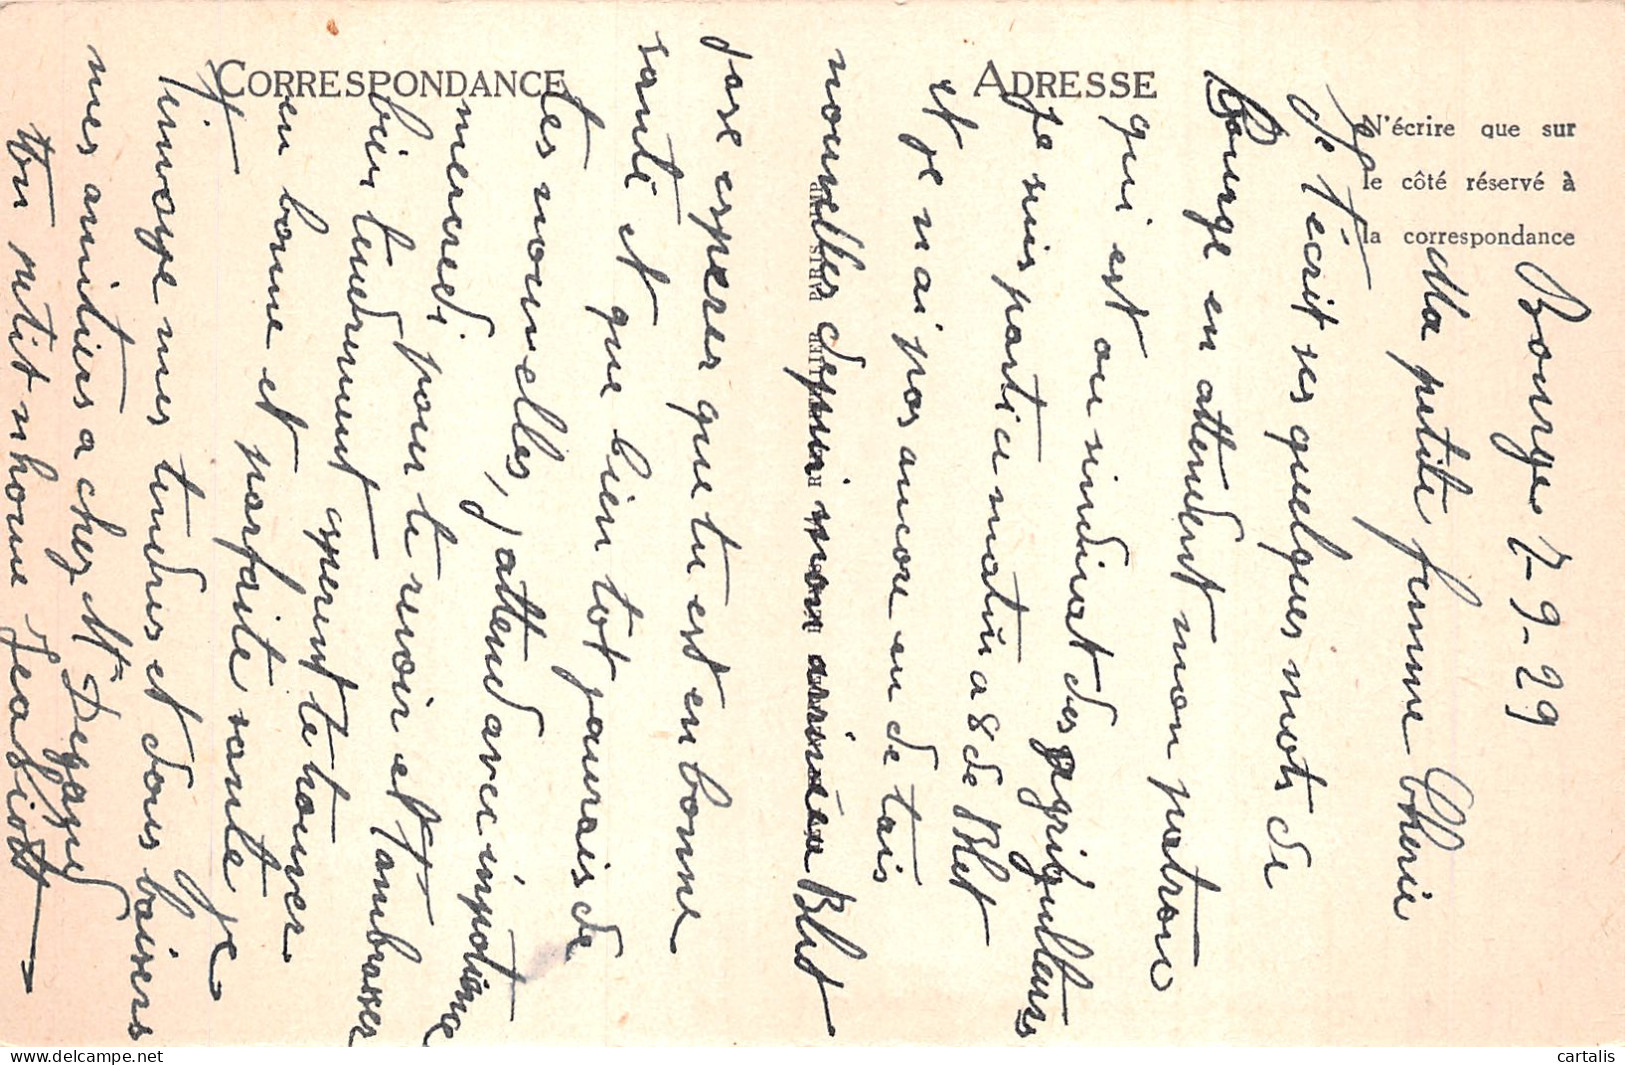 CORRESPONDANCE
ADRESSE
N'écrire que sur
le côté réservé à
la correspondance
Bourges 7-9-29
Ma petite femme Chérie
Je t'écrit ses quelques mots de
Bourge en attendent mon patron
qui est au sindicat des agrigulteurs
Je suis parti ce matin a 8 de Blet
et je n ai pas ancore eu de tais
nouvelles depui mon arivée a Blet
jose esperer que tu est en bonne
santé et que bien tot jaurais de
tes nouvelles, j'attend avec inpotience
mercredi pour te revoir et t'ambrasser
bien tendrement esperent te trouver
en bonne et parfaite sante Je
t'invoye mes tendres et dous baisers
mes amitiers a chez Mr Degaud
ton petit n home
PARIS
cartalis